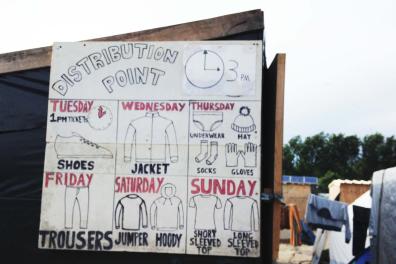 DISTRIBUTION
POINT
3 PM
TUESDAY
1PM TICKETS
SHOES
WEDNESDAY
JACKET
THURSDAY
UNDERWEAR
HAT
SOCKS
GLOVES
FRIDAY
TROUSERS
SATURDAY
JUMPER
HOODY
SUNDAY
SHORT
SLEEVED
TOP
LONG
SLEEVED
TOP